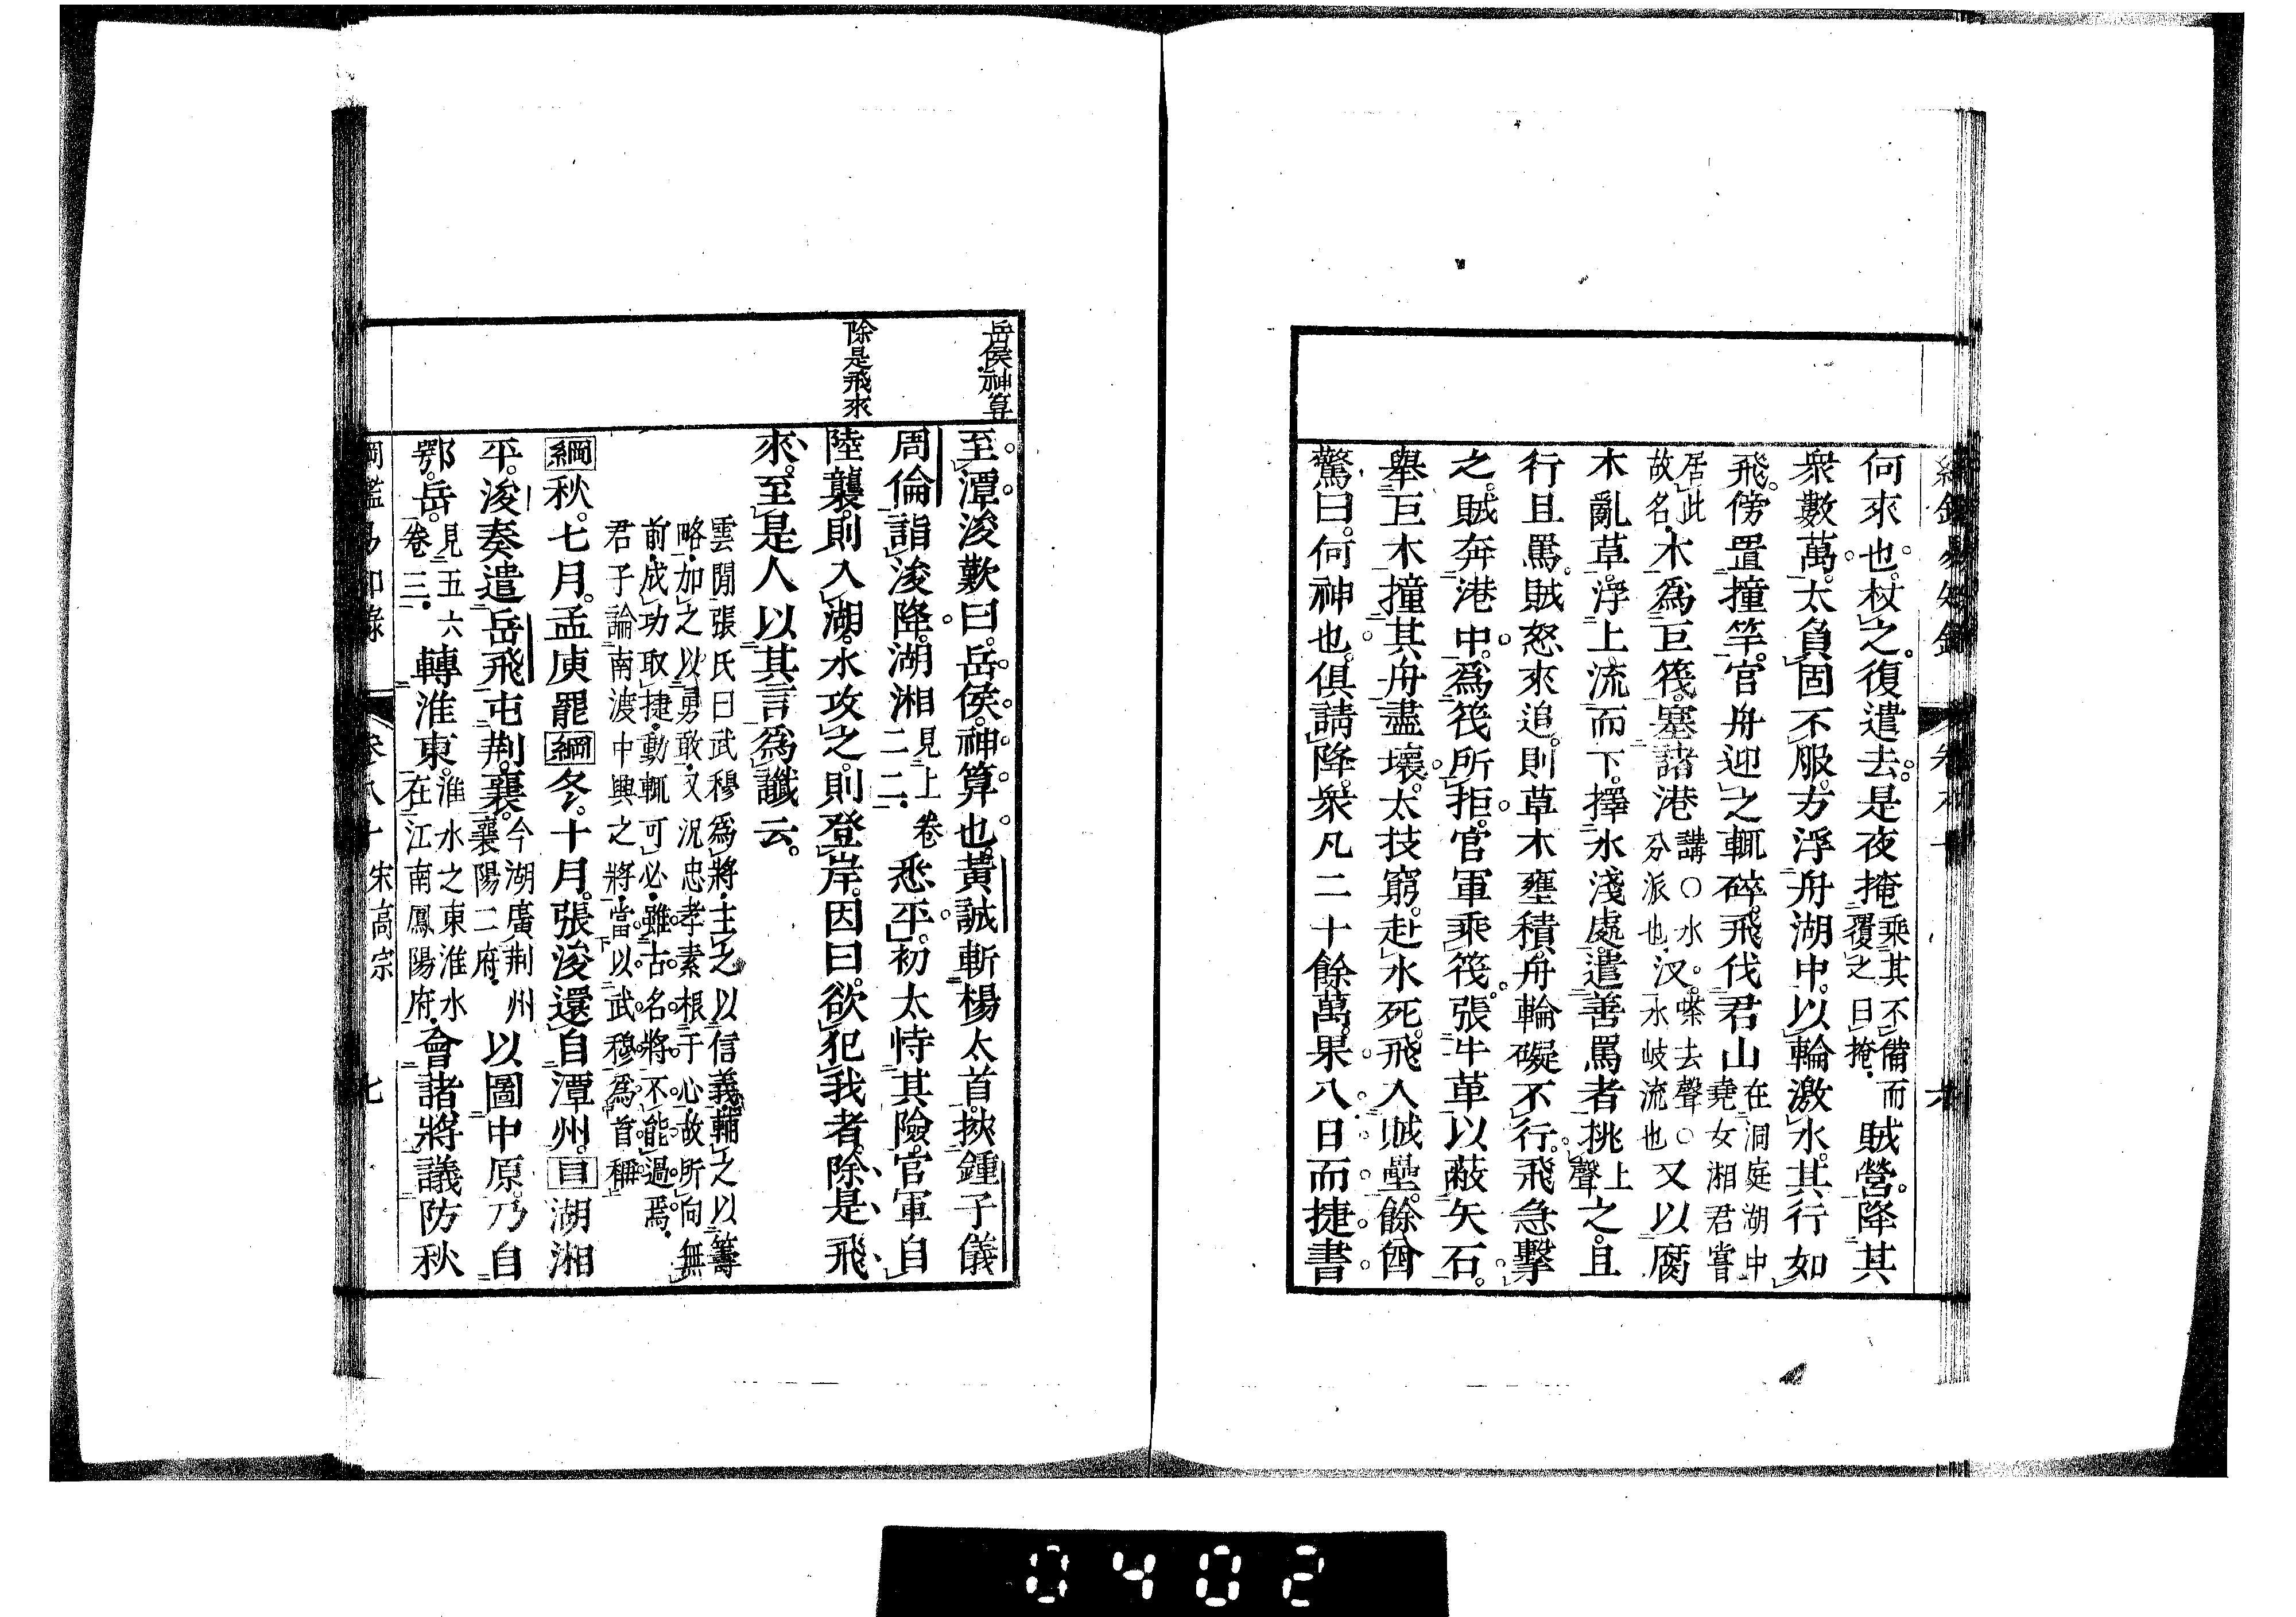 何來也。杖之。復遣去。是夜掩乘其不備而覆之曰掩.賊營。降其
衆數萬。太負固不服。方浮舟湖中。以輪激水。其行如
飛。傍置撞竿。官舟迎之輒碎。飛伐君山在洞庭湖中堯女湘君嘗
居此故名.木爲巨筏。塞諸港講○水分派也.汊.嗏去聲○水岐流也又以腐
木亂草。浮上流而下。擇水淺處。遣善罵者挑上聲之。且
行且罵。賊怒來追。則草木壅積。舟輪礙不行。飛急擊
之。賊奔港中。爲筏所拒。官軍乘筏。張牛革以蔽矢石。
舉巨木撞其舟。盡壞。太技窮。赴水死。飛入賊壘。餘酋
驚曰。何神也。俱請降。衆凡二十餘萬。果八日而捷書
岳侯神算
至潭。浚歎曰。岳侯神算也。黃誠斬楊太首。挾鍾子儀
周倫詣浚降。湖湘見上卷二二.悉平。初太恃其險。官軍自
除是飛來
陸襲。則入湖。水攻之。則登岸。因曰。欲犯我者。除是飛
來。至是人以其言爲讖云。
雲閒張氏曰武穆爲將.主之以信義輔之以籌
略.加之以勇敢.又況忠孝素根于心.故所向無
前.成功取捷.動輒可必.雖古名將不能過焉.
君子論南渡中興之將.當以武穆爲首稱
綱秋。七月。孟庾罷綱冬。十月。張浚還自潭州。目湖湘
平。浚奏遣岳飛屯荆。襄。今湖廣荆州襄陽二府.以圖中原。乃自
鄂。岳。見五六卷三.轉淮東。淮水之東淮水在江南鳳陽府.會諸將議防秋
卷八十 宋高宗 七
0402